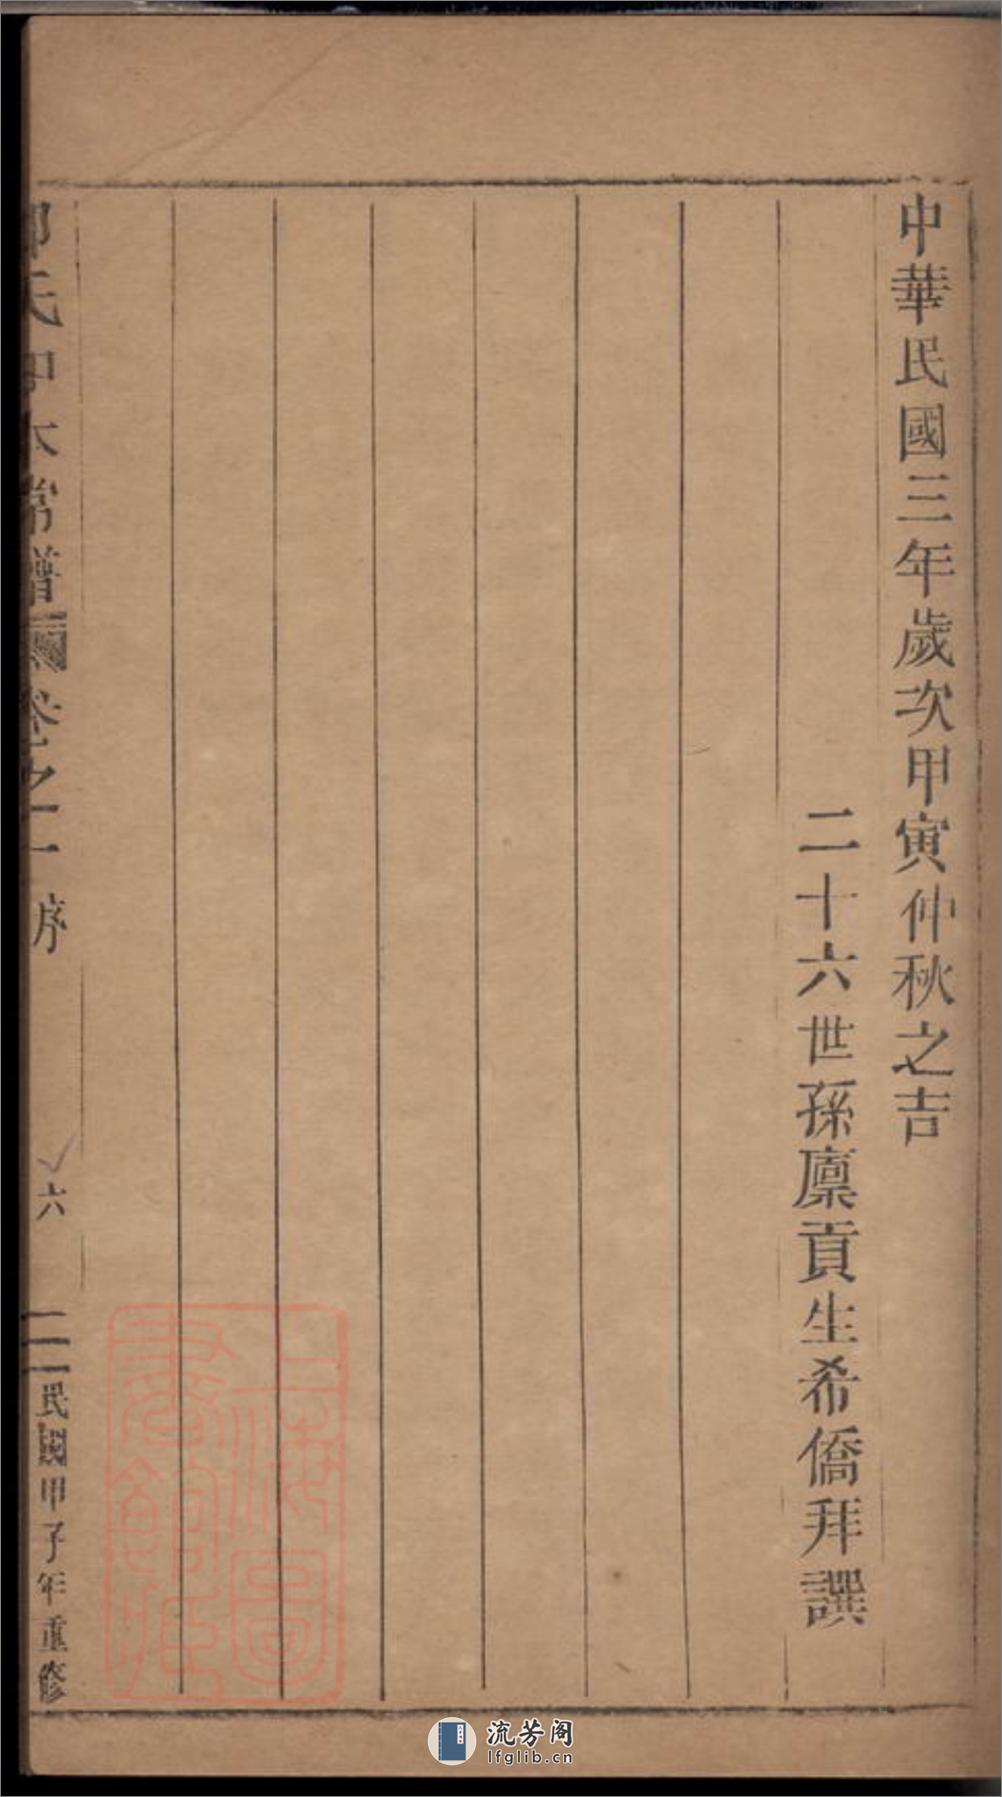 中華民國三年歲次甲寅仲秋之吉
二十六世孫廩貢生希僑拜譔
氏 宗譜 卷之一 序
六
民國甲子年重修
上海圖書館藏
流芳阁
lfglib.cn